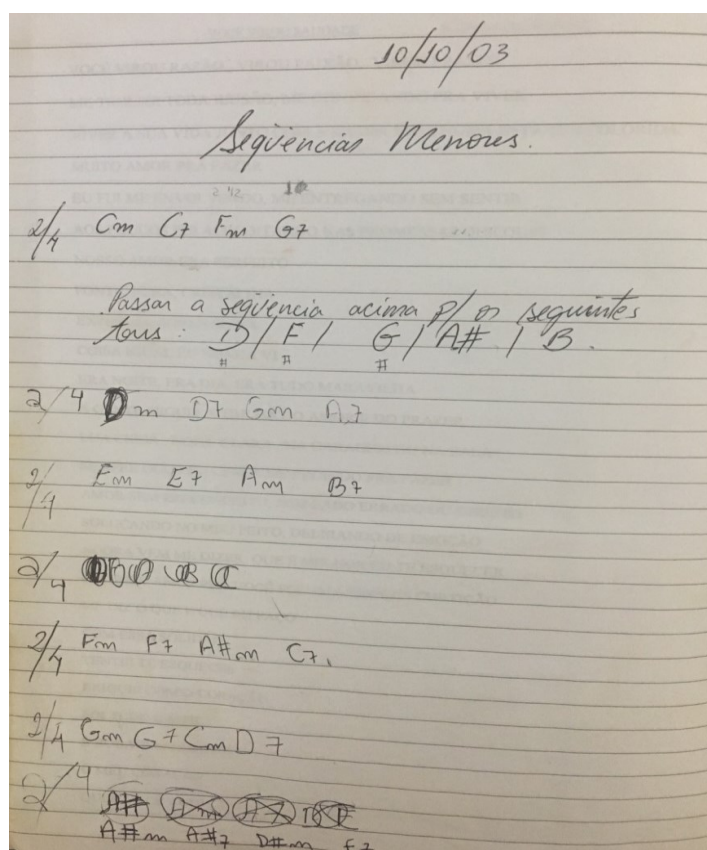 10/10/03
Seqüencias Menores.
2/4 Cm C7 Fm G7
Passar a seqüencia acima p/ os seguintes
tons: D/ F/ G/ A# / B.
# # #
2/4 Dm D7 Gm A7
2/4 Em E7 Am B7
2/4
2/4 Fm F7 A#m C7.
2/4 Gm G7 Cm D7
2/4
A#m A#7 D#m F7